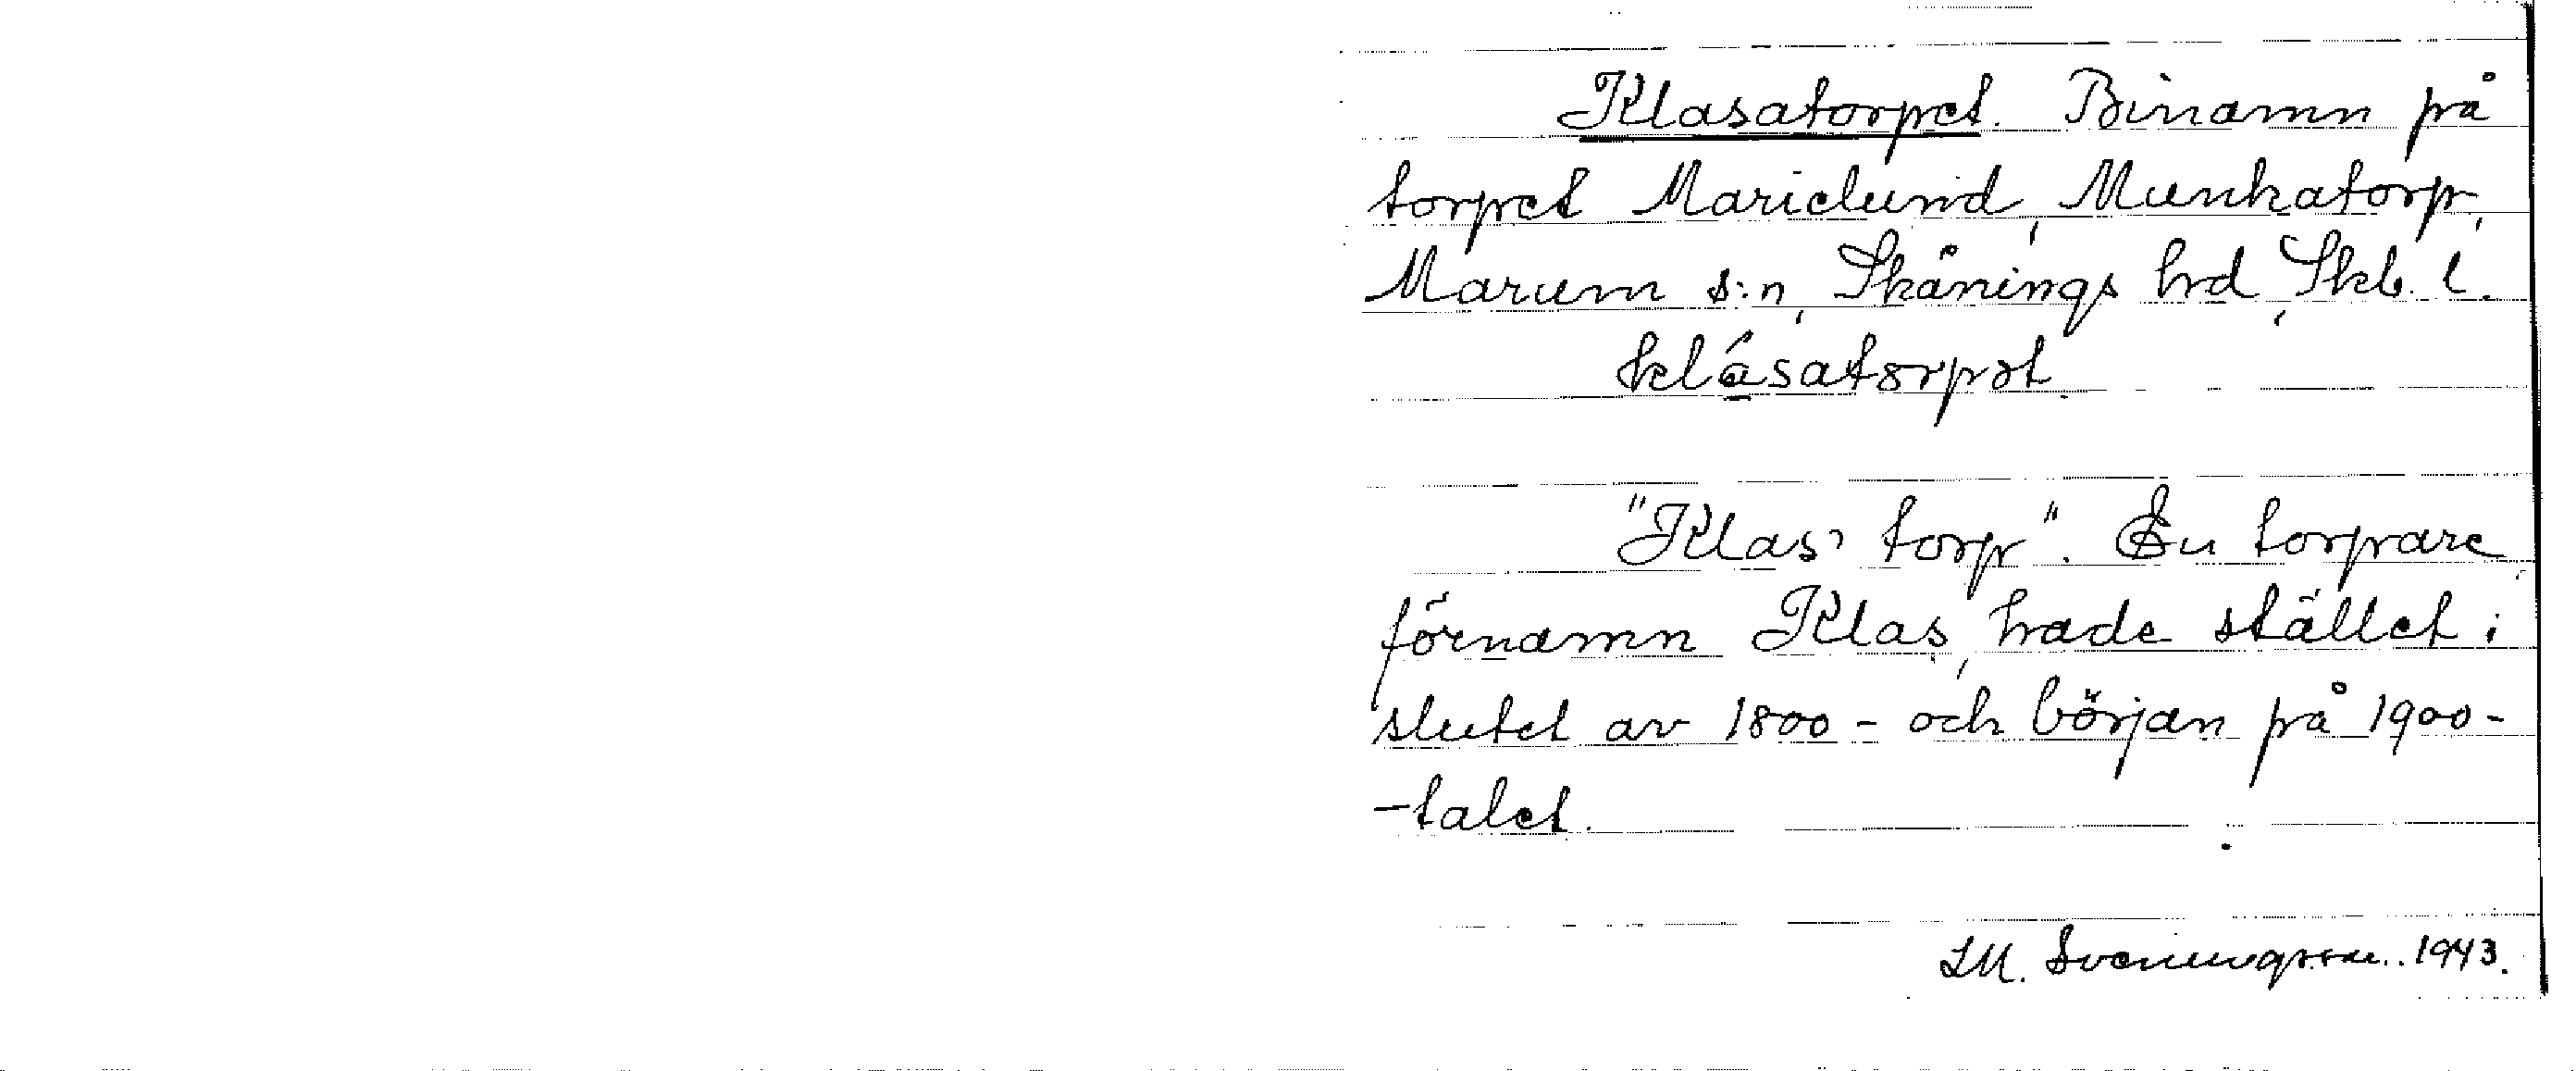 Klasatorpet. Binamn på
torpet Marielund, Munkatorp,
Marum s:n, Skånings hd, Skb. l.
klásatɔrpət.
"Klas' torp". En torpare,
förnamn Klas, hade stället i
slutet av 1800- och början på 1900-
-talet.
Sveningsson. 1943.